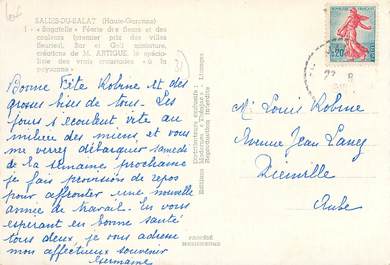 SALIES-DU-SALAT (Haute-Garonne)
1 - « Bagatelle » Féerie des fleurs et des
couleurs (premier prix des villes
fleuries). Bar et Golf miniature,
créations de M. ARTIGUE, le spécia-
liste des vrais croustades « à la
paysanne »
Bonne Fête Robine et des
grosses bises de tous. Les
jours s'écoulent vite au
milieu des miens, et vous
me verrez débarquer samedi
de la semaine prochaine
je fais provision de repos
pour affronter une nouvelle
année de travail. En vous
espérant en bonne santé
tous deux, je vous adresse
mon affectueux souvenir
Germaine
Editions
Limoges
Reproduction interdite
0,20
22 8
M. Louis Robine
Avenue Jean Lanez
Dienville
Aube